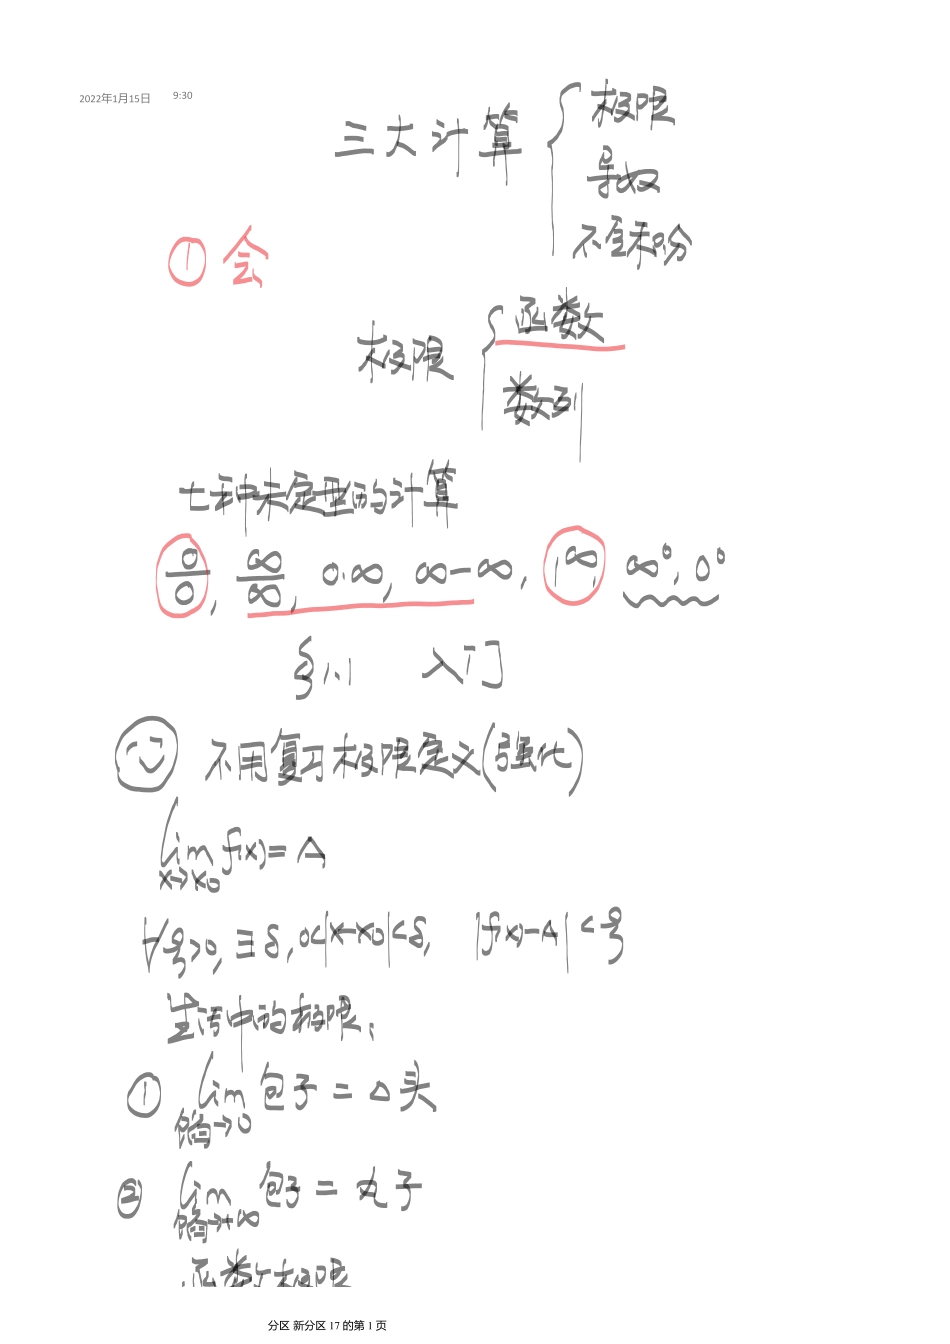 2022年1月15日 9:30
三大计算 { 极限
导数
不定积分
① 会
极限 { 函数
数列
七种未定型的计算
0/0, ∞/∞, 0·∞, ∞-∞, 1^∞, ∞⁰, 0⁰
§1.1 入门
不用复习极限定义(强化)
lim f(x)= A
x→x₀
∀ε>0, ∃δ, 0<|x-x₀|<δ, |f(x)-A|<ε
生活中的极限:
① lim 包子 = 馒头
馅→0
② lim 包子 = 丸子
馅→+∞
函数极限
分区 新分区 17 的第 1 页